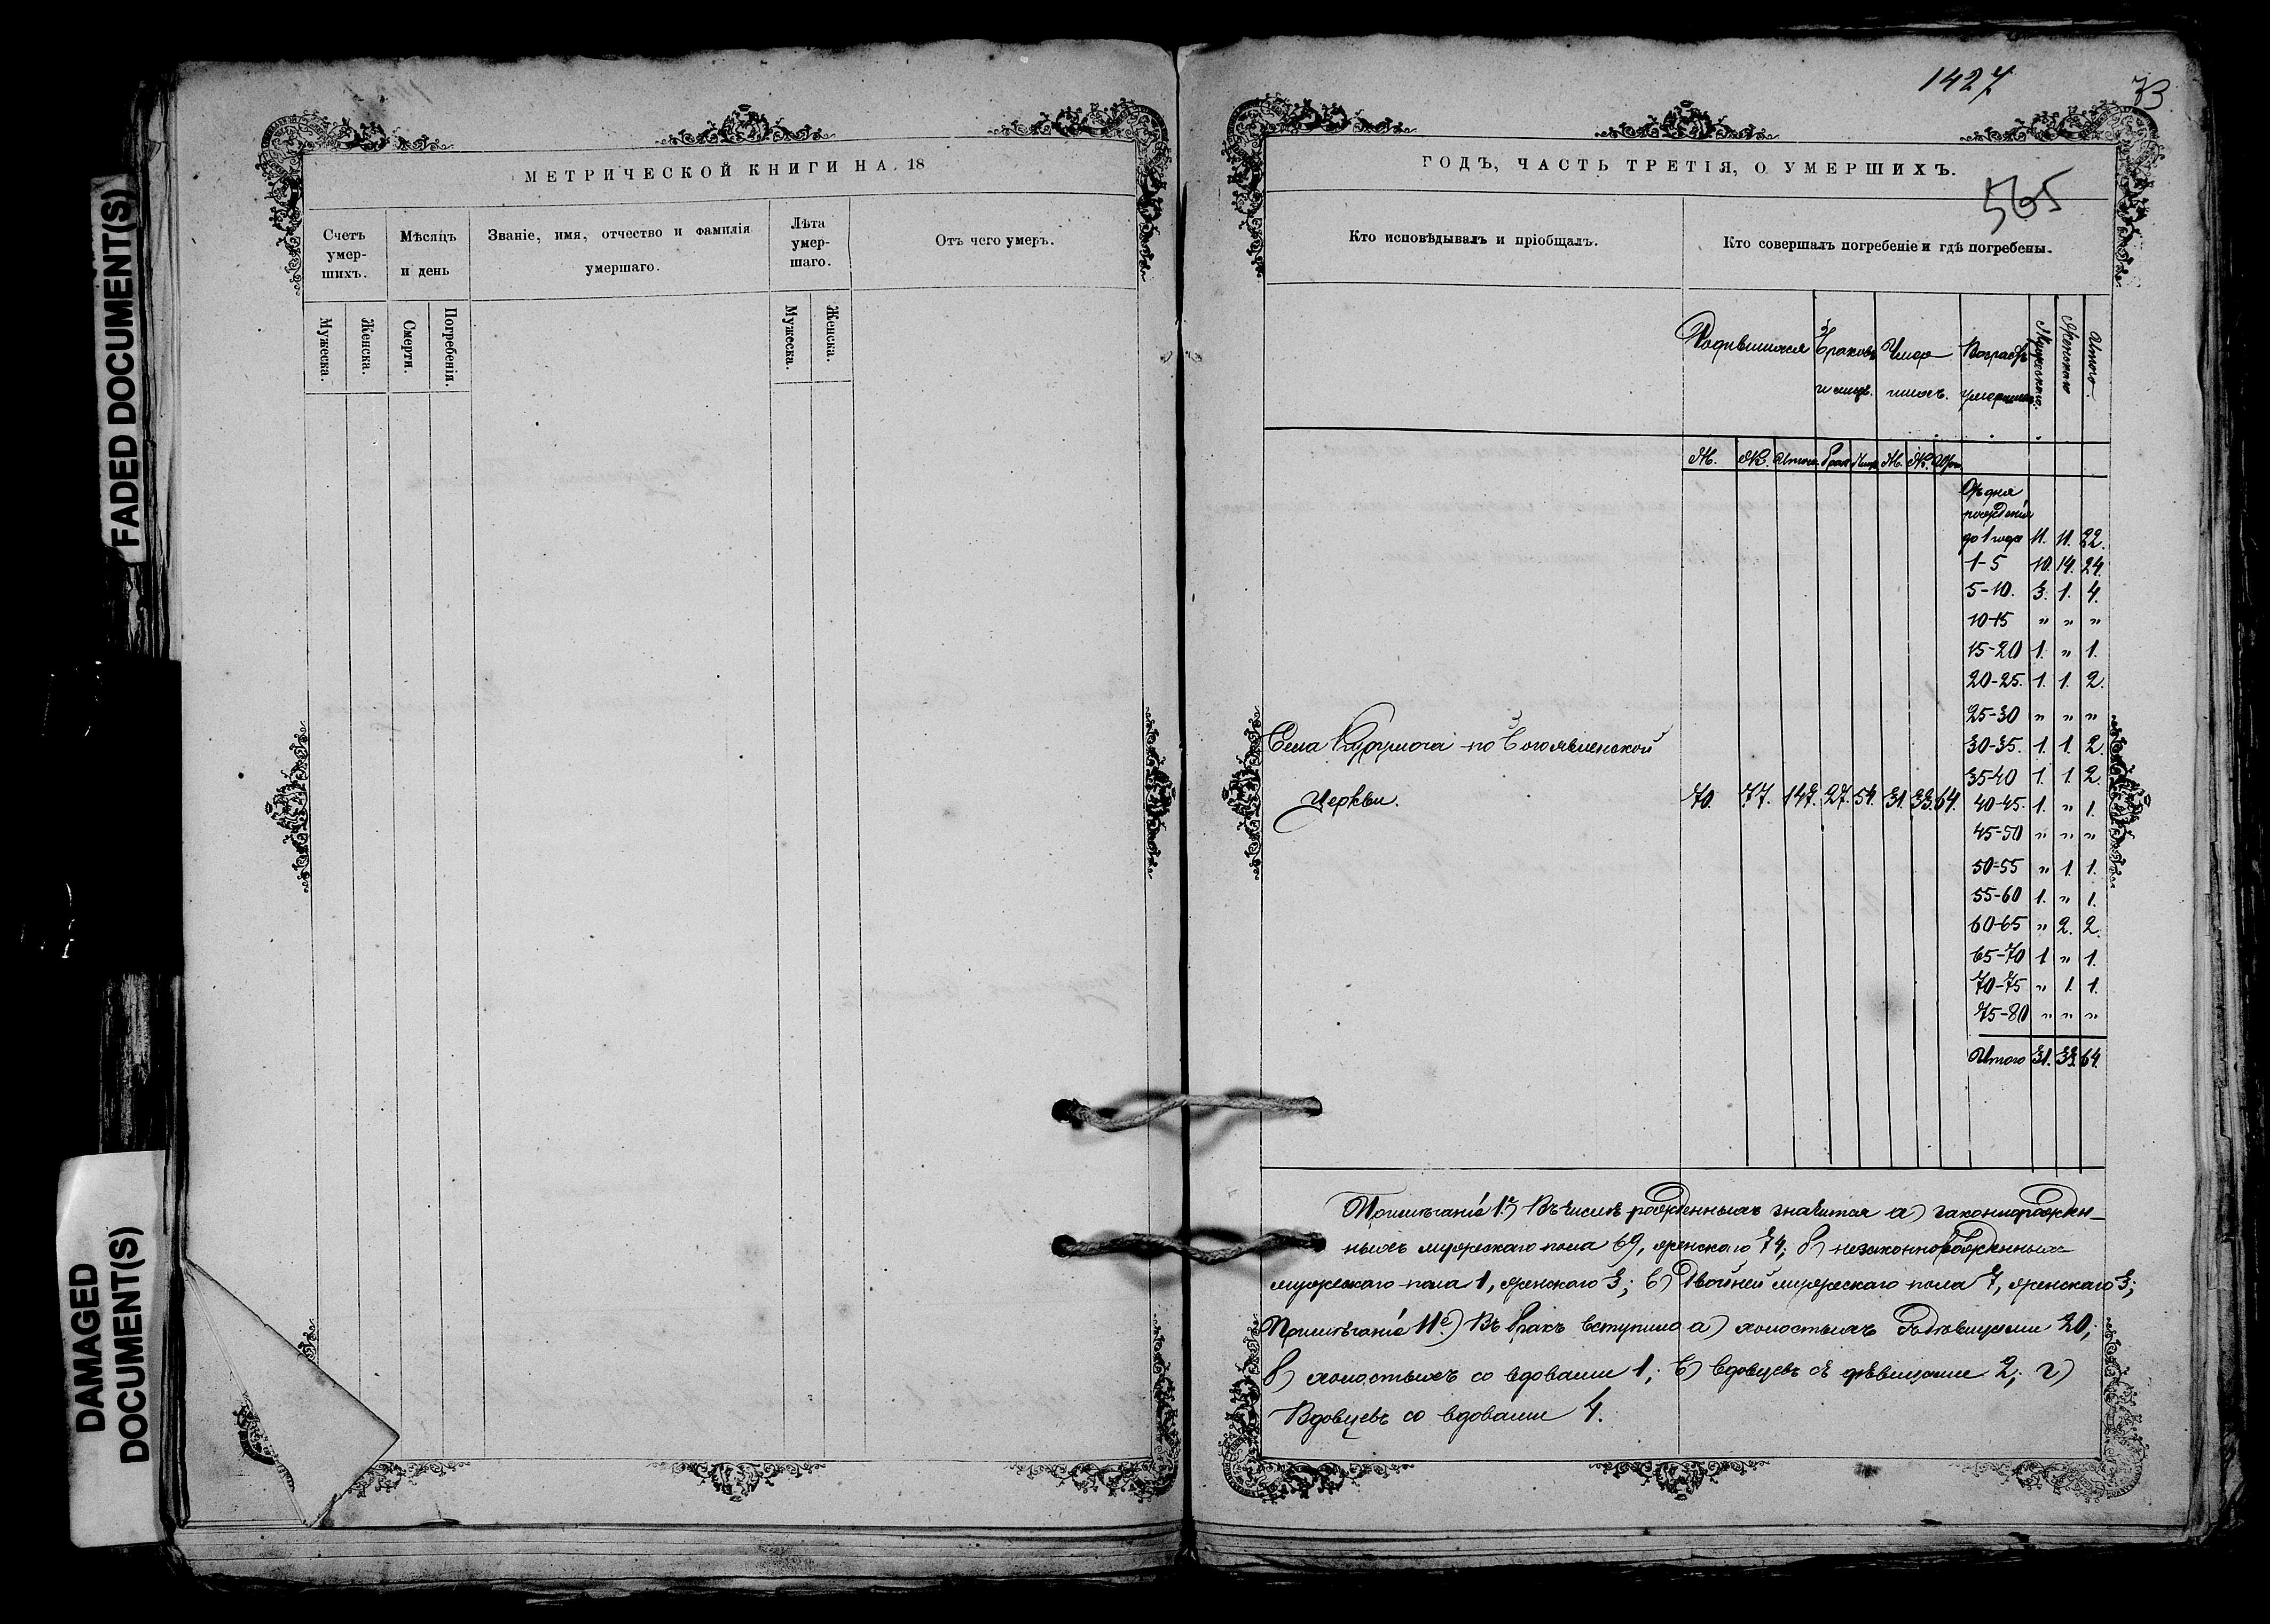 FADED DOCUMENT(S)
DAMAGED
DOCUMENT(S)
МЕТРИЧЕСКОЙ КНИГИ НА 18
Счетъ
умер-
шихъ.
Мѣсяцъ
и день
Званіе, имя, отчество и фамилія
умершаго.
Лѣта
умер-
шаго.
Отъ чего умеръ.
Мужеска.
Женска.
Смерти.
Погребенія.
Мужеска.
Женска.
1427
73
ГОДЪ, ЧАСТЬ ТРЕТІЯ, О УМЕРШИХЪ.
565
Кто исповѣдывалъ и пріобщалъ.
Кто совершалъ погребеніе и гдѣ погребены.
Родившихся
Браковъ
и лицъ.
Умер
шихъ.
Возрастъ
умершихъ
Мужескаго.
Женскаго
Итого.
М. Ж. Итого. Брак. Лиц. М. Ж. Итого
Отъ дня
рожденія
до 1 года 11. 11. 22.
1-5 10. 14. 24.
5-10. 3. 1. 4.
10-15 " " "
15-20 1. " 1.
20-25. 1. 1. 2.
25-30 " " "
30-35. 1. 1. 2.
35-40 1. 1. 2.
40-45. 1. " 1.
45-50 " " "
50-55 " 1. 1.
55-60 1. " 1.
60-65 " 2. 2.
65-70 1 " 1.
70-75 " 1. 1.
75-80 " " "
Итого 31. 33. 64.
Села по Богоявленской
Церкви. 70. 77. 147. 27. 54. 31. 33. 64.
Примѣчаніе 1е) Въ числѣ рожденныхъ значится а) законнорожден-
ныхъ мужескаго пола 69, женскаго 74; б) незаконнорожденныхъ
мужескаго пола 1, женскаго 3; в) двойней мужескаго пола 7, женскаго 3;
Примѣчаніе 11е) Въ бракъ вступило а) холостыхъ съ дѣвицами 20;
б) холостыхъ со вдовами 1; в) вдовцевъ съ дѣвицами 2; г)
Вдовцевъ со вдовами 4.